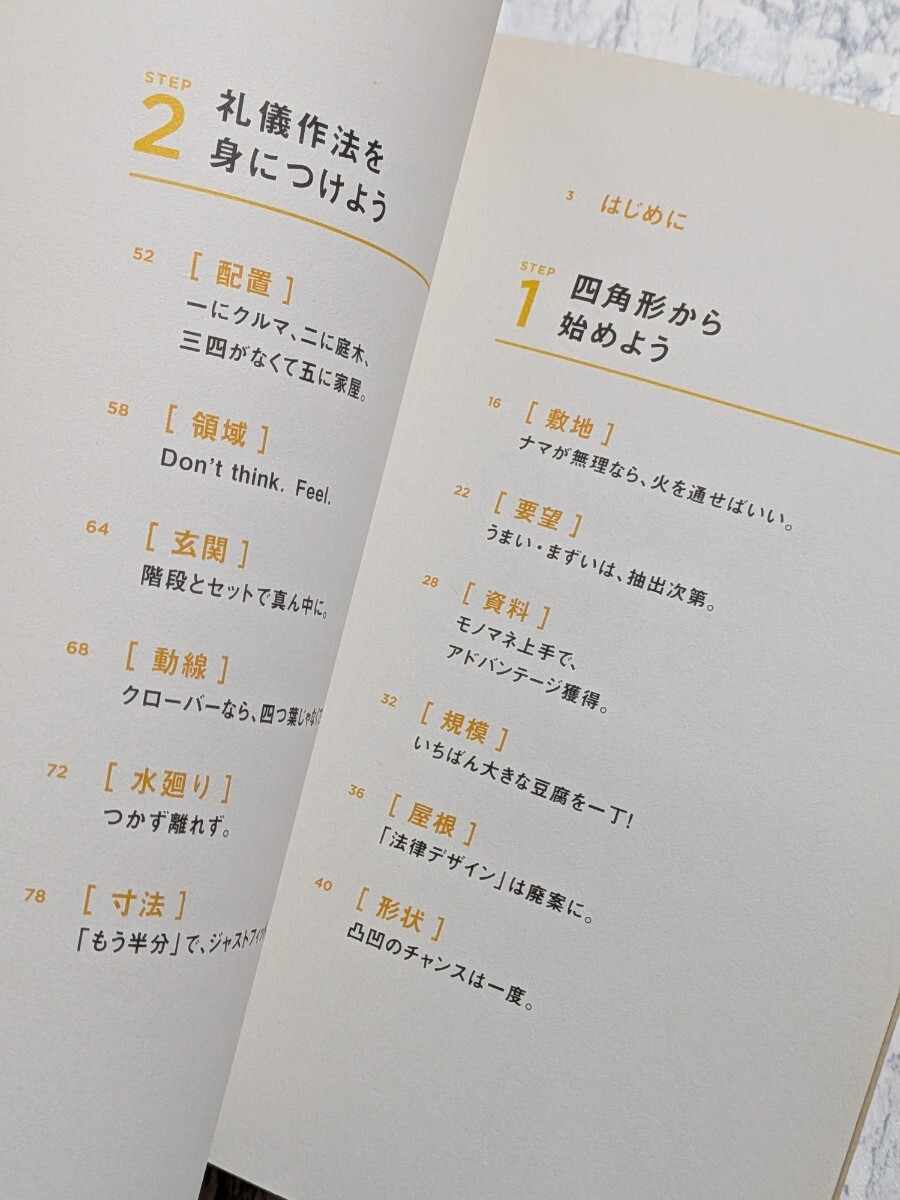 3 はじめに
STEP
1
四角形から
始めよう
16 [ 敷地 ]
ナマが無理なら、火を通せばいい。
22 [ 要望 ]
うまい・まずいは、抽出次第。
28 [ 資料 ]
モノマネ上手で、
アドバンテージ獲得。
32 [ 規模 ]
いちばん大きな豆腐を一丁!
36 [ 屋根 ]
「法律デザイン」は廃案に。
40 [ 形状 ]
凸凹のチャンスは一度。
STEP
2
礼儀作法を
身につけよう
52 [ 配置 ]
一にクルマ、二に庭木、
三四がなくて五に家屋。
58 [ 領域 ]
Don't think. Feel.
64 [ 玄関 ]
階段とセットで真ん中に。
68 [ 動線 ]
クローバーなら、四つ葉じゃなくて
72 [ 水廻り ]
つかず離れず。
78 [ 寸法 ]
「もう半分」で、ジャストフィッ